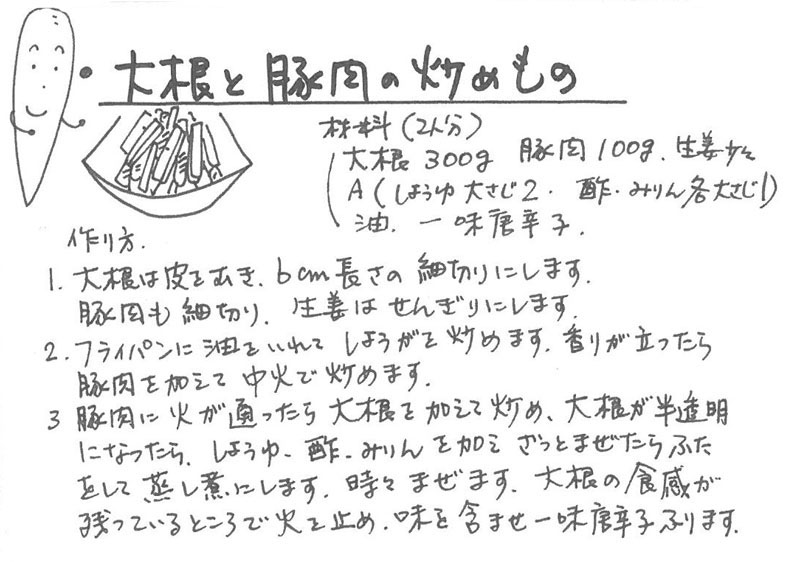 大根と豚肉の炒めもの
材料(2人分)
大根 300g 豚肉 100g. 生姜少々
A(しょうゆ 大さじ2・酢・みりん各大さじ1)
油. 一味唐辛子.
作り方.
1. 大根は皮をむき、6cm長さの細切りにします.
豚肉も細切り. 生姜はせんぎりにします.
2. フライパンに油をいれてしょうがを炒めます. 香りが立ったら
豚肉を加えて中火で炒めます.
3 豚肉に火が通ったら大根を加えて炒め、大根が半透明
になったら、しょうゆ・酢・みりんを加えざっとまぜたらふた
をして蒸し煮にします. 時々まぜます. 大根の食感が
残っているところで火を止め、味を含ませ一味唐辛子ふります.